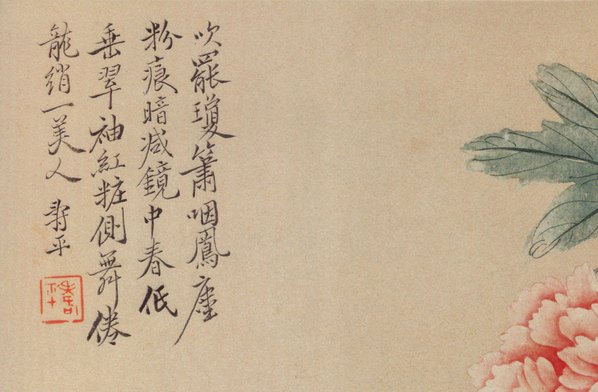 吹罷瓊簫咽鳳塵
粉痕暗减鏡中春低
垂翠袖紅粧側舞倦
龍綃一美人 壽平